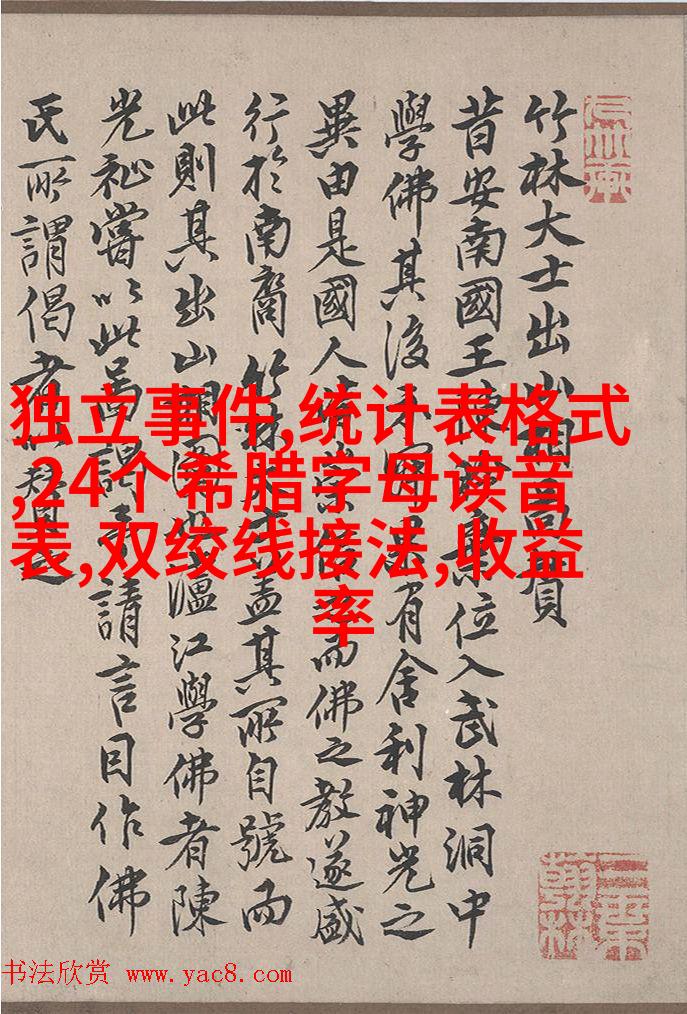 竹林大士出山
昔安南國王棄位入武林洞中
學佛其後果有舍利神光之
異由是國人崇而佛之教遂盛
行於南裔竹林大士蓋其所自號而
此則其出山相圖瀘江學佛者陳
光祉嘗以此為請言因作佛
氏所謂偈者以贊之
独立事件,统计表格式
,24个希腊字母读音
表,双绞线接法,收益
率
书法欣赏 www.yac8.com